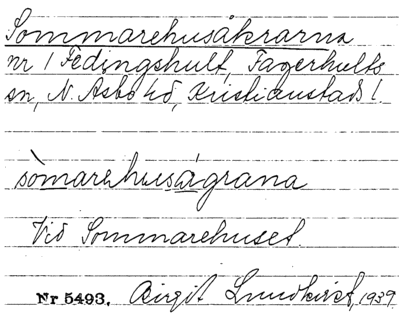 Sommarehusåkrarna
nr 1 Fedingshult, Fagerhults
sn, N. Åsbo hd, Kristianstads l.
sòmarehuságrana
Vid Sommarehuset.
Nr 5493. Birgit Lundkvist, 1939